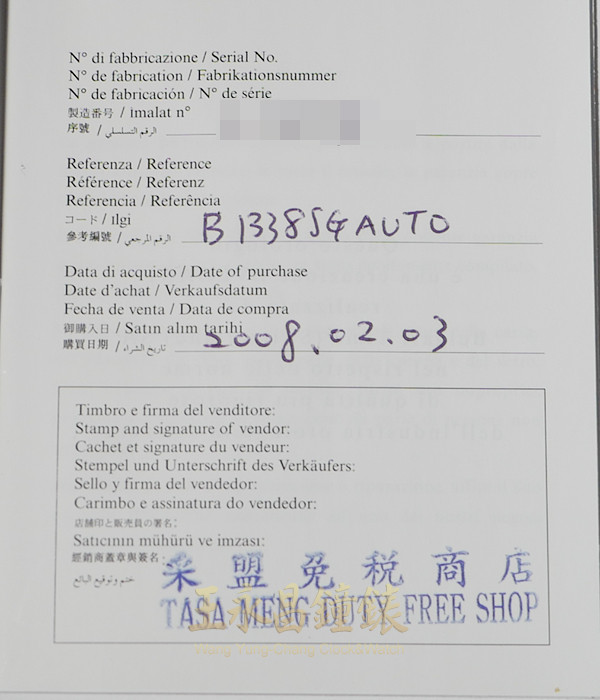 N° di fabbricazione / Serial No.
N° de fabrication / Fabrikationsnummer
N° de fabricación / N° de série
製造番号 / imalat n°
序號 / الرقم التسلسلي
Referenza / Reference
Référence / Referenz
Referencia / Referência
コード / Ilgi
參考編號 / الرقم المرجعي B1338SGAUTO
Data di acquisto / Date of purchase
Date d'achat / Verkaufsdatum
Fecha de venta / Data de compra
御購入日 / Satın alım tarihi
購買日期 / تاريخ الشراء 2008.02.03
Timbro e firma del venditore:
Stamp and signature of vendor:
Cachet et signature du vendeur:
Stempel und Unterschrift des Verkäufers:
Sello y firma del vendedor:
Carimbo e assinatura do vendedor:
店舗印と販売員の署名:
Satıcının mühürü ve imzası:
經銷商蓋章與簽名:
ختم وتوقيع البائع
采盟免税商店
TASA MENG DUTY FREE SHOP
正永昌鐘錶